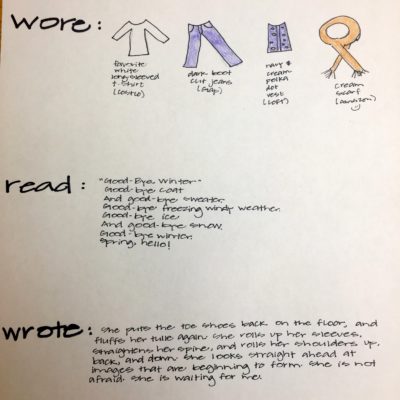 wore:
favorite
white
long sleeved
t-shirt
(costco)
dark boot
cut jeans
(gap)
navy &
cream
polka
dot
vest
(LOFT)
cream
scarf
(amazon)
read:
"Good-Bye, Winter"
Good-bye coat
And good-bye sweater.
Good-bye freezing windy weather.
Good-bye ice,
And good-bye snow.
Good-bye winter.
Spring, hello!
wrote: she puts the toe shoes back on the floor, and
fluffs her tulle again. she rolls up her sleeves,
straightens her spine, and rolls her shoulders up,
back, and down. she looks straight ahead at
images that are beginning to form. she is not
afraid. she is waiting for me.